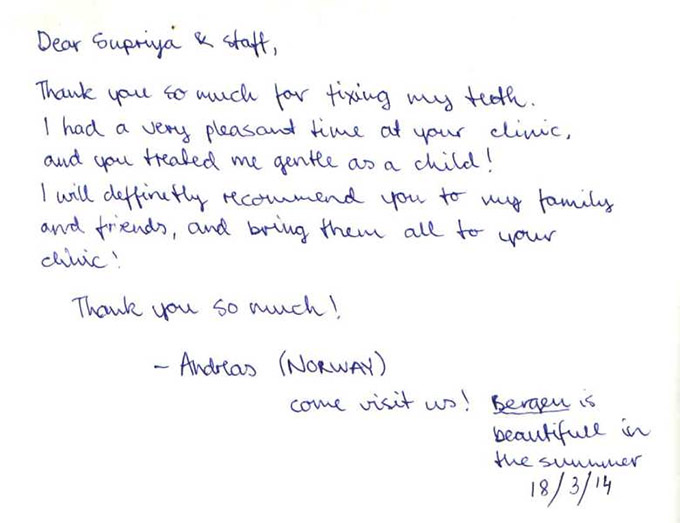 Dear Supriya & staff,
Thank you so much for fixing my teeth.
I had a very pleasant time at your clinic,
and you treated me gentle as a child!
I will deffinetly recommend you to my family
and friends, and bring them all to your
clinic!
Thank you so much!
- Andreas (NORWAY)
come visit us! Bergen is
beautifull in
the summer
18/3/14